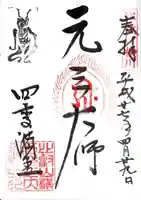 奉拝
平成廿七年四月廿九日
元三大師
四季講堂